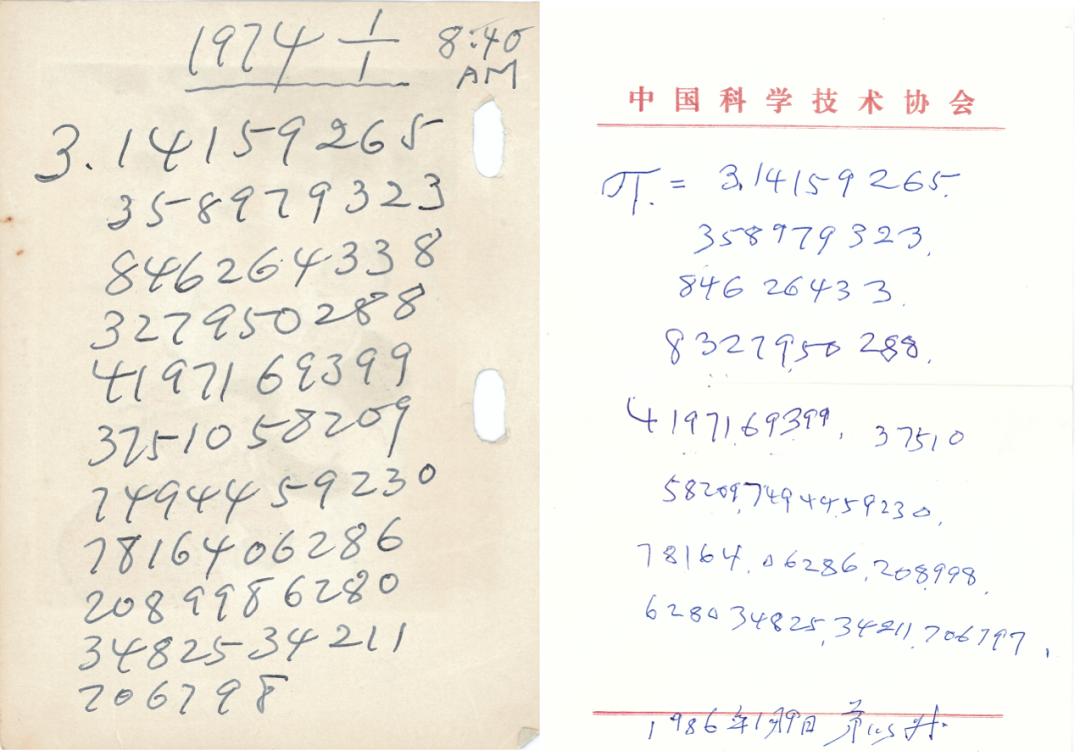 1974 1/1 8:40
AM
3.14159265
358979323
846264338
327950288
4197169399
3751058209
7494459230
7816406286
2089986280
3482534211
706798
中国科学技术协会
π. = 3.14159265.
358979323.
84626433.
8327950288.
4197169399, 37510
58209,7494459230,
78164.06286,208998.
628034825,34211,706797,
1986年1月9日 茅以升